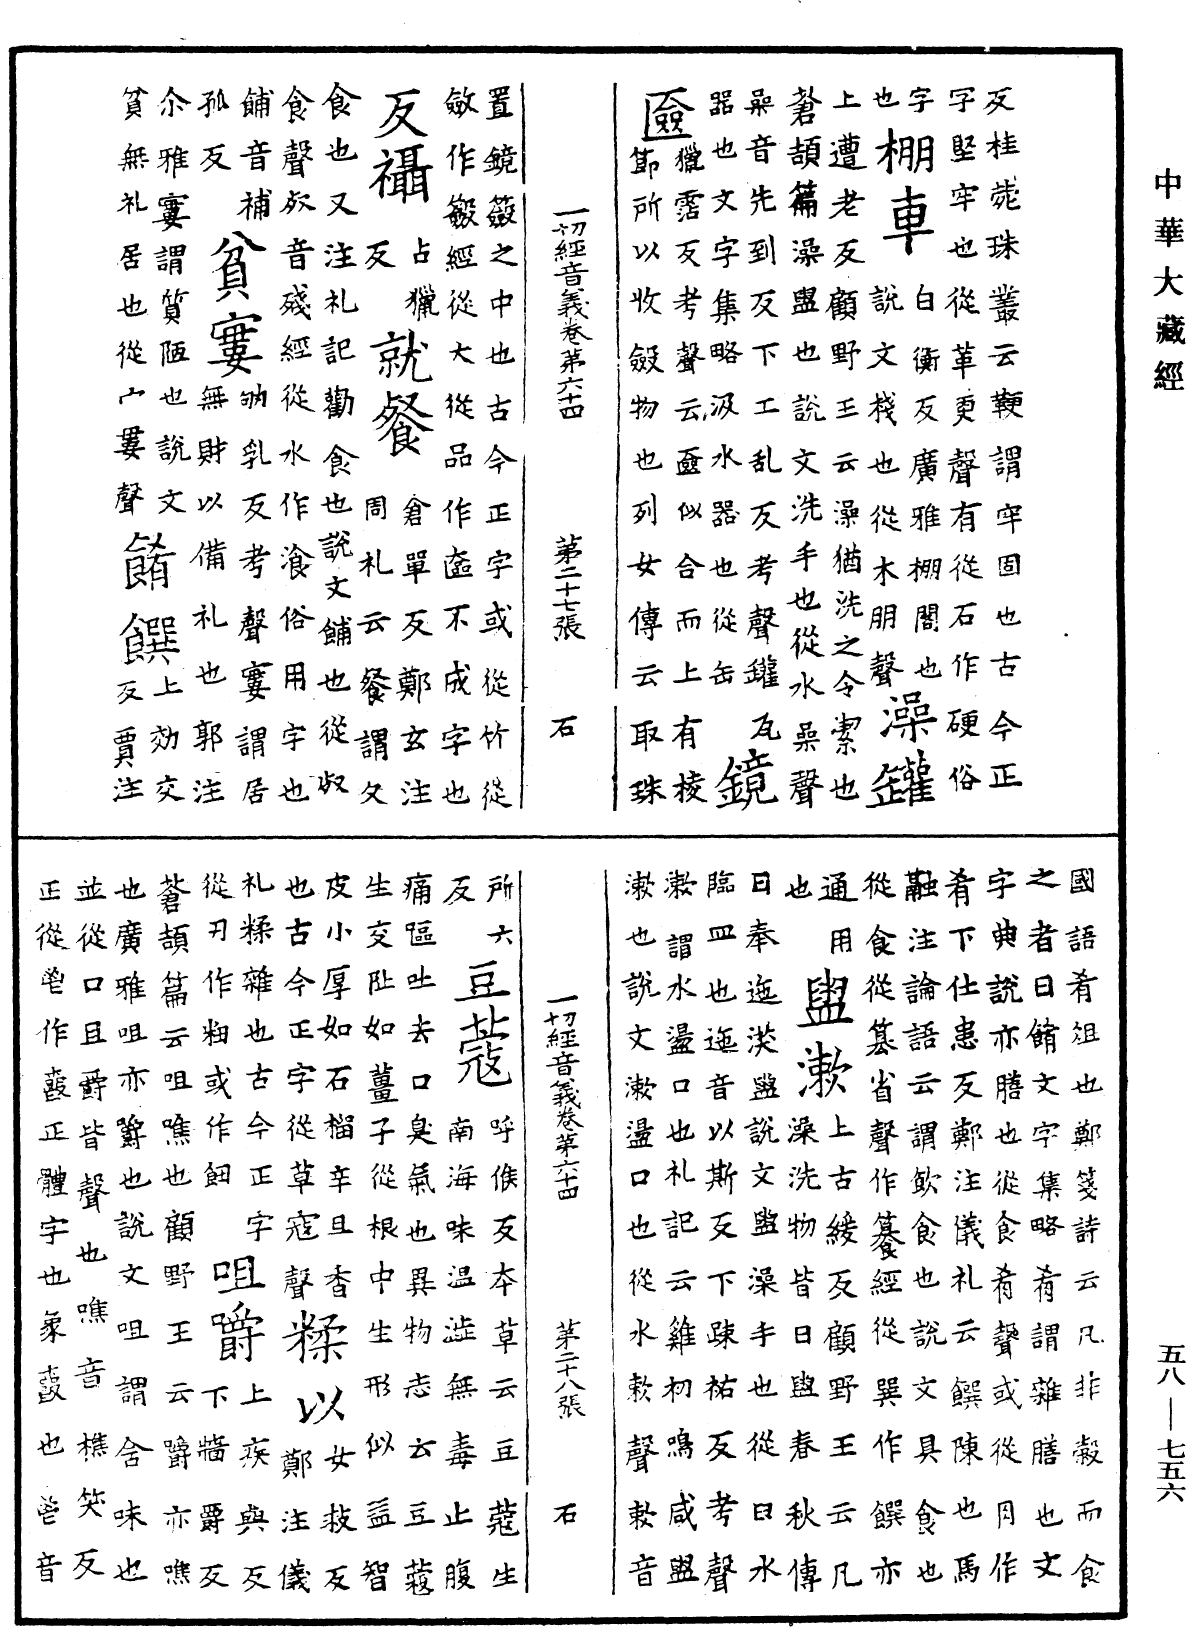 中華大藏經
反桂菀珠叢云鞕謂牢固也古今正
字堅牢也從革更聲有從石作硬俗
字棚車白衡反廣雅棚閣也
也說文棧也從木朋聲澡罐
上遭老反顧野王云澡猶洗之令潔也
蒼頡篇澡盥也說文洗手也從水喿聲
喿音先到反下工乱反考聲罐瓦
器也文字集略汲水器也從缶鏡
匳獵霑反考聲云匳似合而上有棱
節所以收斂物也列女傳云取珠
一切經音義卷第六十四 第二十七張 石
置鏡籢之中也古今正字或從竹從
斂作籢經從大從品作匲不成字也
反襵占獵反就餐倉單反鄭玄注
周礼云餐謂夕
食也又注礼記勸食也說文餔也從𣦼
食聲𣦼音殘經從水作湌俗用字也
餔音補貧寠劬乳反考聲寠謂居
孤反無財以備礼也郭注
尒雅寠謂質陋也說文餚饌上効交
貧無礼居也從宀婁聲反賈注
國語肴俎也鄭箋詩云凡非穀而食
之者曰餚文字集略肴謂雜膳也文
字典說亦膳也從食肴聲或從月作
肴下仕恚反鄭注儀礼云饌陳也馬
融注論語云謂飲食也說文具食也
從食從算省聲作籑經從巽作饌亦
通用盥漱上古緩反顧野王云凡
也澡洗物皆曰盥春秋傳
曰奉迤沃盥說文盥澡手也從臼水
臨皿也迤音以斯反下踈祐反考聲
漱謂水盪口也礼記云雞初鳴咸盥
漱也說文漱盪口也從水欶聲欶音
一切經音義卷第六十四 第二十八張 石
所六反豆蔻呼候反本草云豆蔻生
南海味温澁無毒止腹
痛嘔吐去口臭氣也異物志云豆蔻
生交阯如薑子從根中生形似益智
皮小厚如石榴辛且香糅以女救反
也古今正字從草寇聲鄭注儀
礼糅雜也古今正字咀嚼上疾與反
從丑作粈或作䬔下牆爵反
蒼頡篇云咀噍也顧野王云嚼亦噍
也廣雅咀亦嚼也說文咀謂含味也
並從口且爵皆聲也噍音樵笑反
正從鬯作𩰥正體字也象𩰥也鬯音
五八—七五六